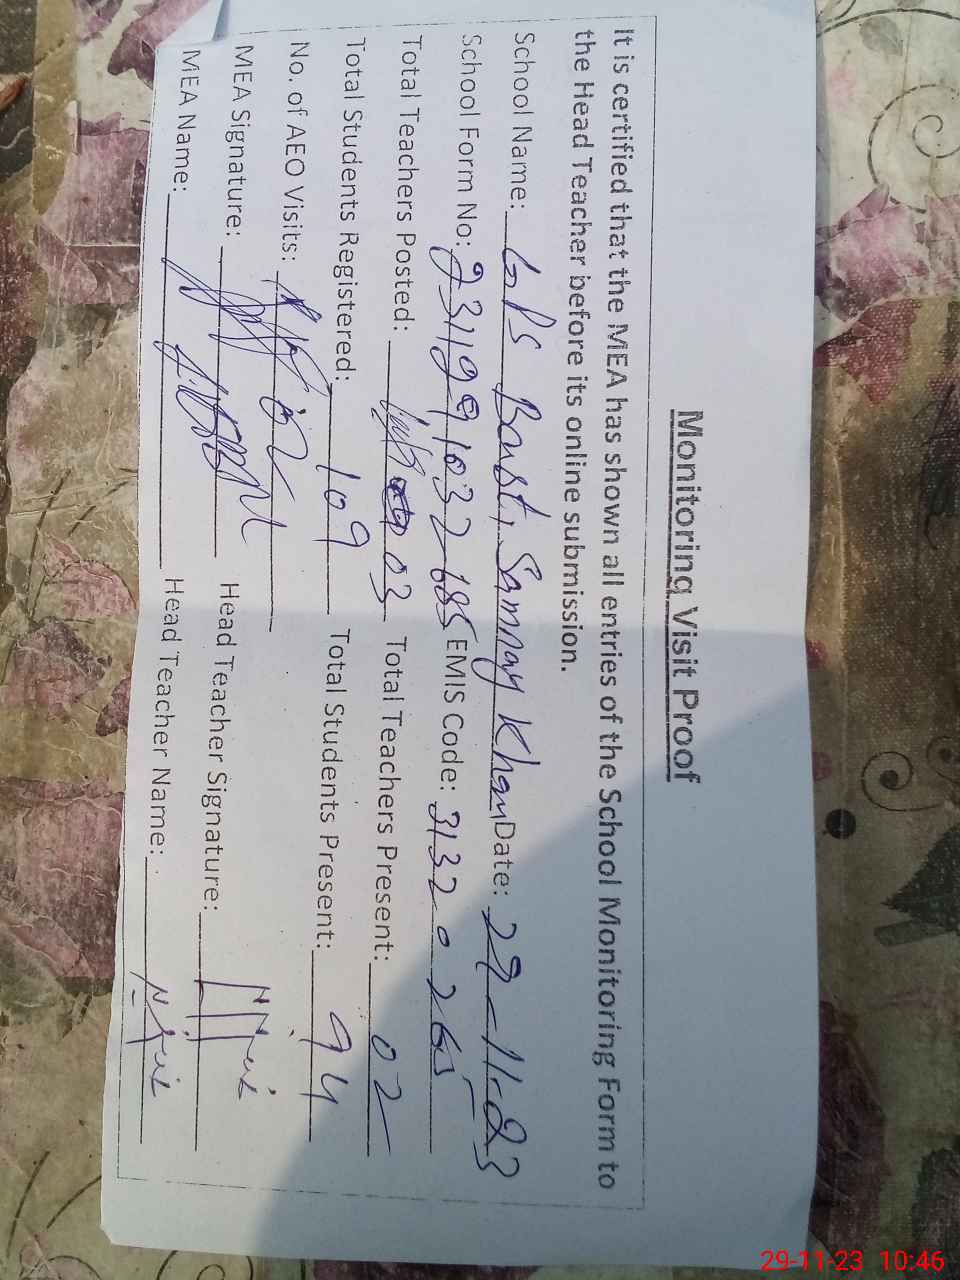 Monitoring Visit Proof
It is certified that the MEA has shown all entries of the School Monitoring Form to
the Head Teacher before its online submission.
School Name: GPS Basti Sammay Khan Date: 29-11-23
School Form No: 2311991032685 EMIS Code: 31320265
Total Teachers Posted: 03 Total Teachers Present: 02
Total Students Registered: 109 Total Students Present: 94
No. of AEO Visits:
MEA Signature: Head Teacher Signature:
MEA Name: Head Teacher Name:
29-11-23 10:46